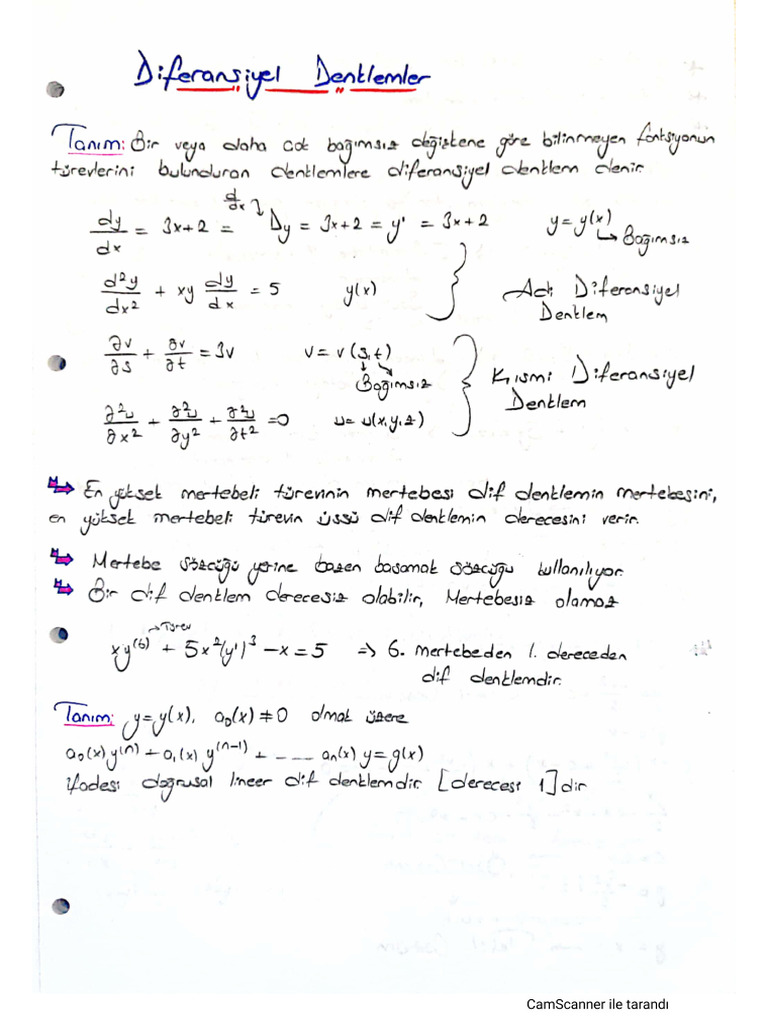 Diferansiyel Denklemler
Tanım: Bir veya daha çok bağımsız değişkene göre bilinmeyen fonksiyonun
türevlerini bulunduran denklemlere diferansiyel denklem denir.
d/dx
dy/dx = 3x+2 = Dy = 3x+2 = y' = 3x+2 y=y(x)
Bağımsız
d²y/dx² + xy dy/dx = 5 y(x)
Adi Diferansiyel
Denklem
∂v/∂s + ∂v/∂t = 3v v = v(s,t)
Bağımsız
Kısmi Diferansiyel
Denklem
∂²u/∂x² + ∂²u/∂y² + ∂²u/∂t² = 0 u = u(x,y,z)
En yüksek mertebeli türevinin mertebesi dif denklemin mertebesini,
en yüksek mertebeli türevin üssü dif denklemin derecesini verir.
Mertebe sözcüğü yerine bazen basamak sözcüğü kullanılıyor.
Bir dif denklem derecesiz olabilir, Mertebesiz olamaz
→Türev
xy⁽⁶⁾ + 5x²(y')³ - x = 5 => 6. mertebeden 1. dereceden
dif denklemdir.
Tanım: y=y(x), a₀(x) ≠ 0 olmak üzere
a₀(x) y⁽ⁿ⁾ + a₁(x) y⁽ⁿ⁻¹⁾ + ---- aₙ(x) y = g(x)
ifadesi doğrusal lineer dif denklemdir. [derecesi 1]dir
CamScanner ile tarandı